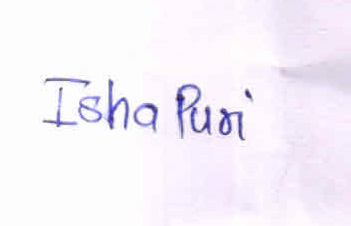 Isha Puri